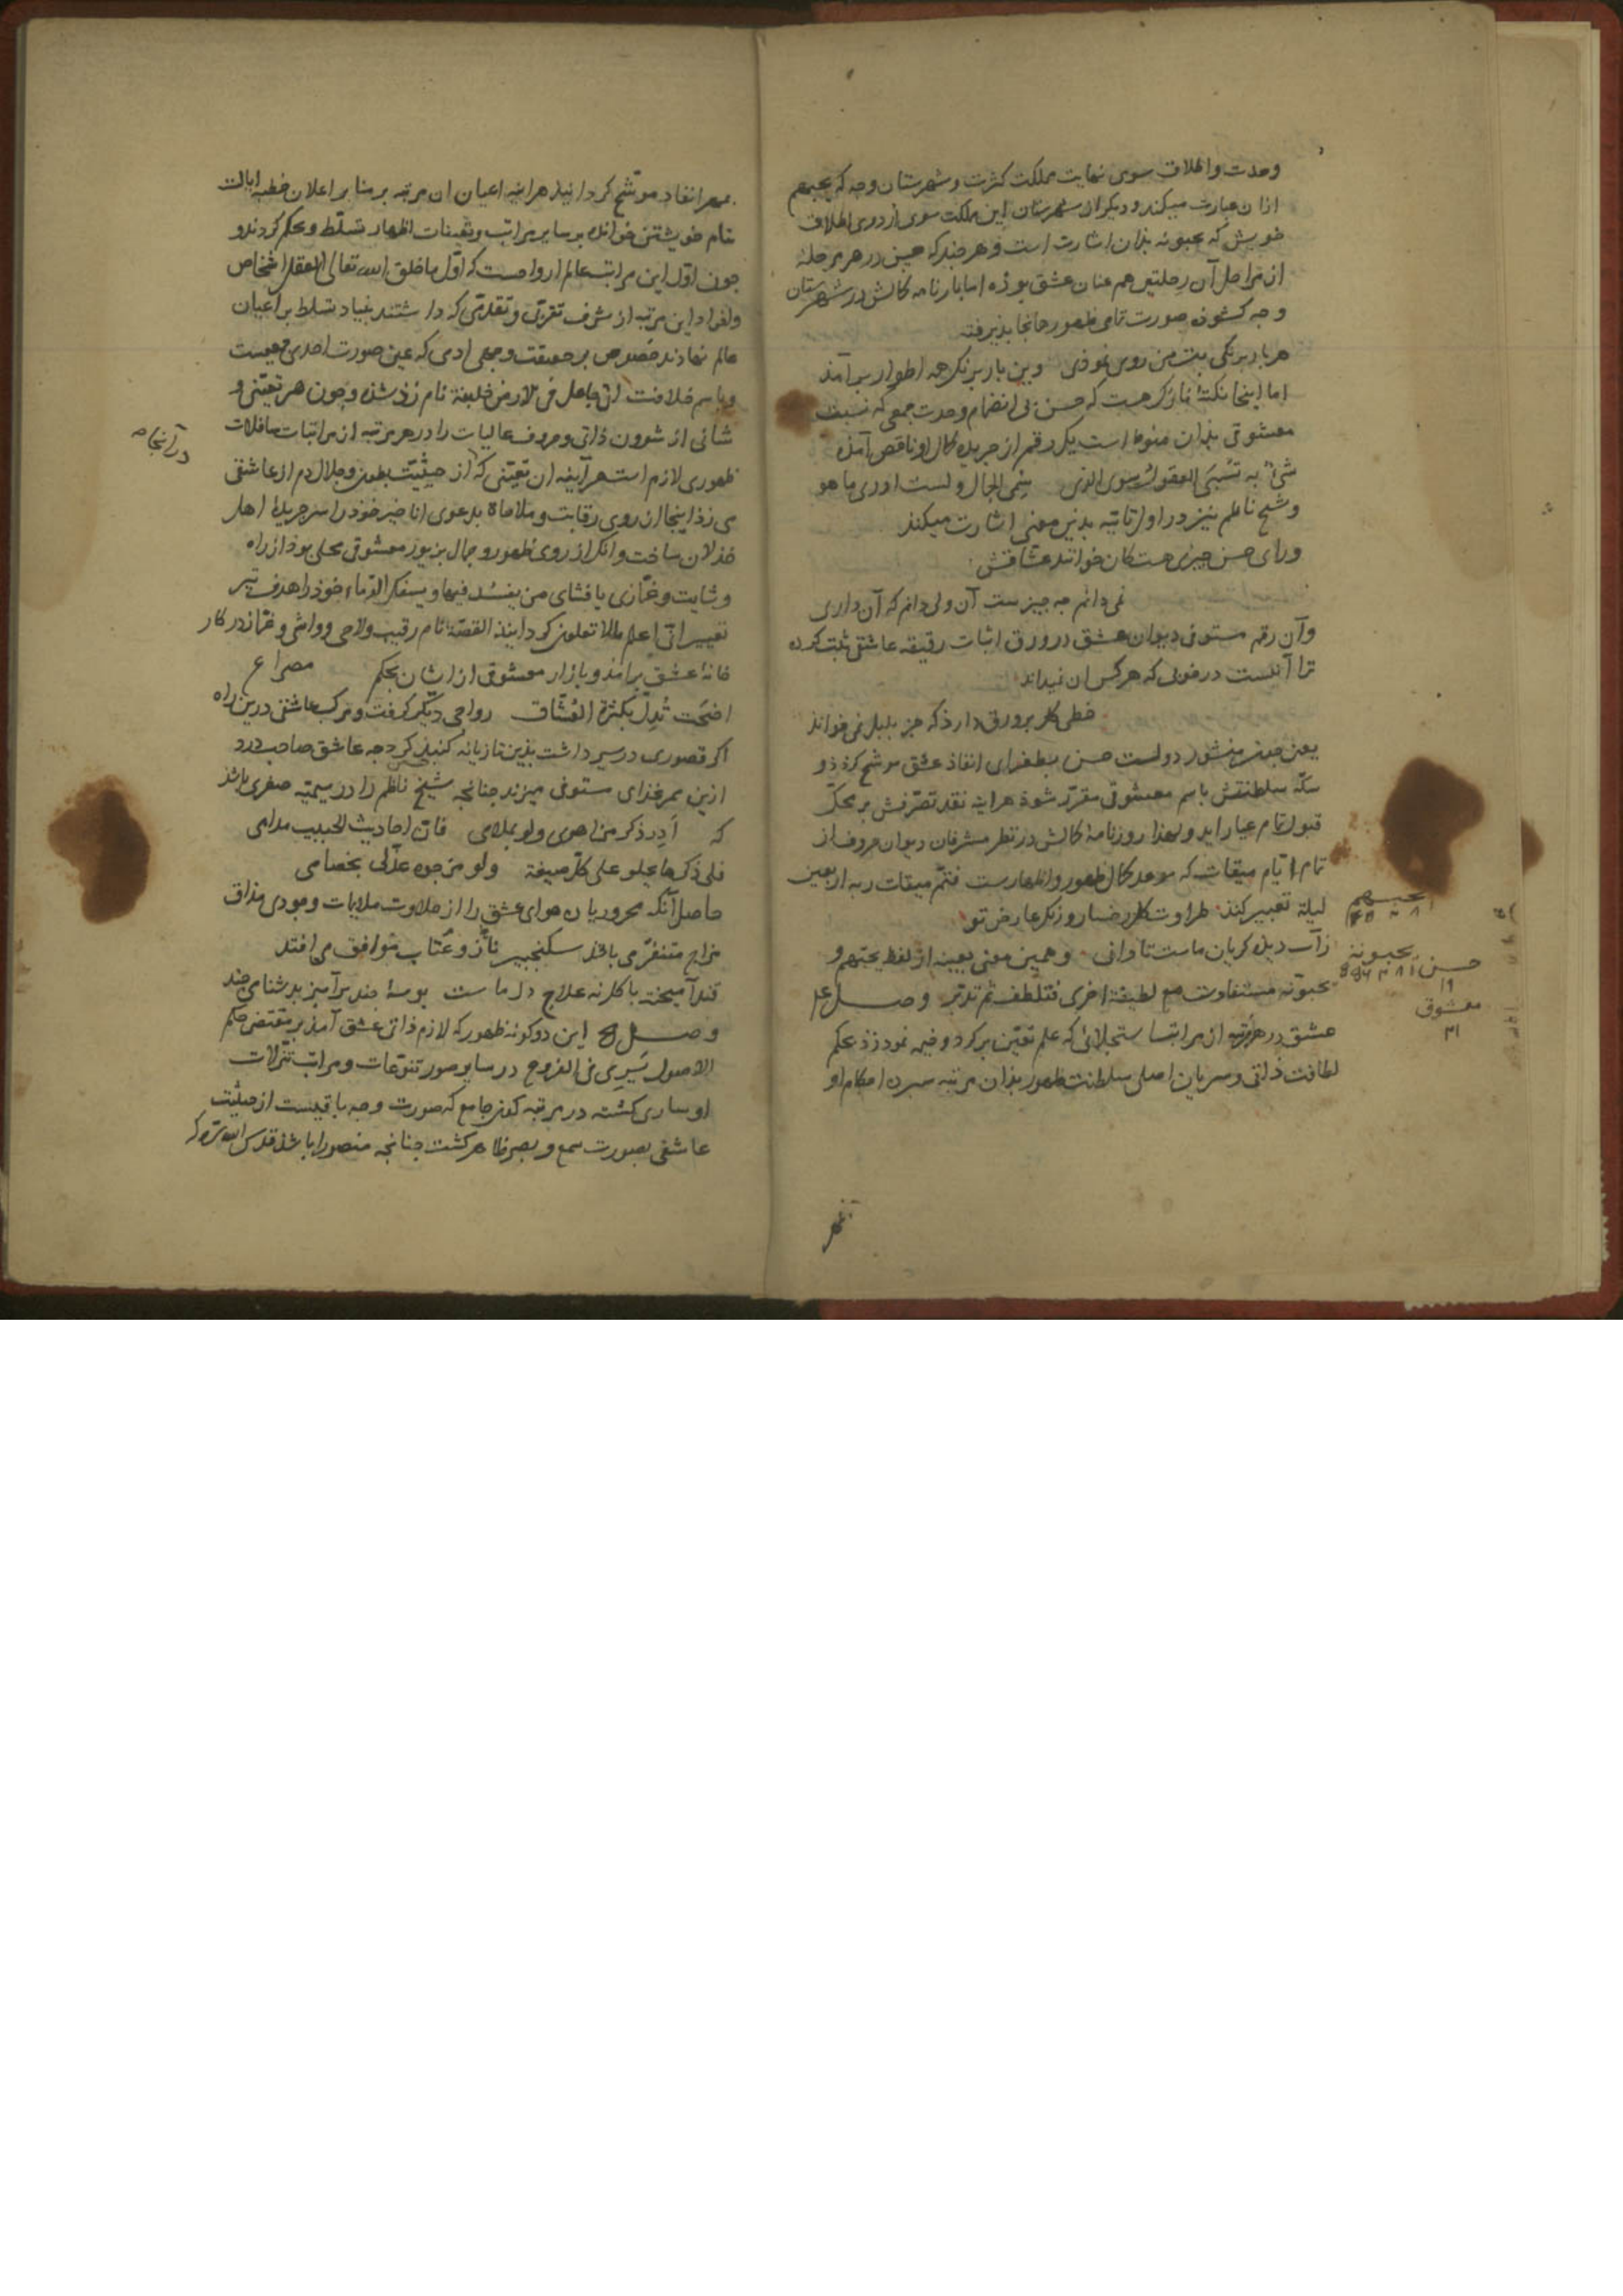 وحدت واطلاق سوی نهایت مملکت کثرت و شهرستان وجه که یحبهم
ازان عبارت میکند و دیگر ان شهرستان این مملکت سوی از دوی اطلاق
خویش که یحبونه بذان اشارت است و هر چند که حسن در هر مرحلهٔ
از مراحل آن رحلتین هم عنان عشق بوذه اما بارنامه کمالش در شهرستان
وجه کشوذه صورت تمامی ظهور جانجا پذیرفته
هر بار برنکی بت من روی نموذی وین بار برنک همه اطوار برآمذ
اما اینجا نکتهٔ نمازکر هست که حسن بی انضمام وحدت جمعی که نسبت
معشوقی بذان منوط است یک رقم از جریده کمال او ناقص آمذه
شیءٌ به تسبی العقول سوی الذی سمی الجمال ولست ادری ما هو
وشیخ ناظم نیز در اول تائیه بدین معنی اشارت میکند
ورای حسن چیزی هست کان خوانند عشاقش
نمی دانم چه چیزست آن ولی دانم که آن داری
وآن رقم مستوفی دیوان عشق در ورق اثبات رقیقه عاشقی ثبت کرده
ترا آنست در خوبی که هرکس آن نمیداند
خطی کل بر ورق دارذ که جز بلبل نمی خواند
یعنی چون منشور دولت حسن بطغرای انفاذ عشق موشح کرذذ و
سکهٔ سلطنتش باسم معشوقی مقرر شوذ هراینه نقد تصرفش بر محک
قبول تمام عیار اید ولهذا روزنامهٔ کمالش در نظر مشرفان دیوان حروف از
تمام ایام میقات که موعد کمال ظهور واظهارست فتم میقات ربه اربعین
لیلة تعبیر کند طراوت کل رخسار و رنک عارض تو
زآب دیده کریان ماست تا دانی وهمین معنی بعینه از لفظ یحبهم و
یحبونه مستفادست مع لطیفة اخری فتلطف ثم تدبر وصل
عشق در هر مرتبه از مراتب استجلائی که علم تعین برکرد وفیه نمود زد بحکم
لطافت ذاتی وسریان اصلی سلطنت ظهور بذان مرتبه سپرده احکام او
یحبهم
یحبونه
حسن
معشوق
بمهر انفاذ موشح کرداند هراینه اعیان ان مرتبه بر منابر اعلان خطبه ایالت
بنام خویشتن خوانده بر سایر مراتب وتعینات اظهار تسلط وتحکم کردندو
چون اول این مراتب عالم ارواحست که اول ما خلق الله تعالی العقل اشخاص
وافراد این مرتبه از شرف تقربی وتقدمی که داشتند بنیاد تسلط بر اعیان
عالم نهاذند خصوص بر حقیقت وجمعی ادمی که عین صورت احدی جمعیست
وباسم خلافت انی جاعل فی الارض خلیفة نام زذ شذه وچون هر تعینی و
شانی از شوون ذاتی وحروف عالیات را در هر مرتبه از مراتبات سافلات
ظهوری لازم است هرآینه ان تعینی که از حیثیت بطون وجلال دم از عاشقی
می زذ اینجا از روی رقابت وملاحاة بدعوی انا خیر خوذ را سر جریدهٔ اهل
خذلان ساخت وانک از روی ظهور وجمال بزیور معشوقی محلی بوذ از راه
وشایت وغمازی بافشای من یفسد فیها ویسفک الدماء خوذ را هدف تیر
تعییر انی اعلم ما لا تعلمون کرداینذ القصه نام رقیب ولاحی وواشی وغماز در کار
خانهٔ عشق برامذ و بازار معشوقی از ایشان بحکم مصراع
اضحت تدل بکثرة العشاق رواجی دیکر کرفت ومرکب عاشقی درین راه
اکر قصوری در سیر داشت بذین تازیانه کنبذی کرد چه عاشق صاحب درد
ازین ممر غذای مستوفی میزند چنانچه شیخ ناظم را در میمیه صغری باشذ
که ادر ذکر من اهوی ولو بملامی فان احادیث الحبیب مدامی
فلی ذکرها یحلو علی کل صیغة ولو مزجوه عذلی بخصامی
حاصل آنکه محروریان هوای عشق را از حلاوت ملایمات وموذی مذاق
مزاج متنفر می باشذ سکنجبیر ناز وعتاب موافق می افتد
قند آمیخته با کل نه علاج دل ماست بوسهٔ چند برآمیز بدشنامی چند
وصل این دو کونه ظهور که لازم ذاتی عشق آمذ بر مقتضی حکم
الاصول یسری فی الفروع در سایر صور تنوعات ومراتب تنزلات
او ساری کشته در مرتبه کون جامع که صورت وجه باقیست از حیثیت
عاشقی بصورت سمع و بصر ظاهر کشت چنانچه منصور را باشد قدس الله سره که